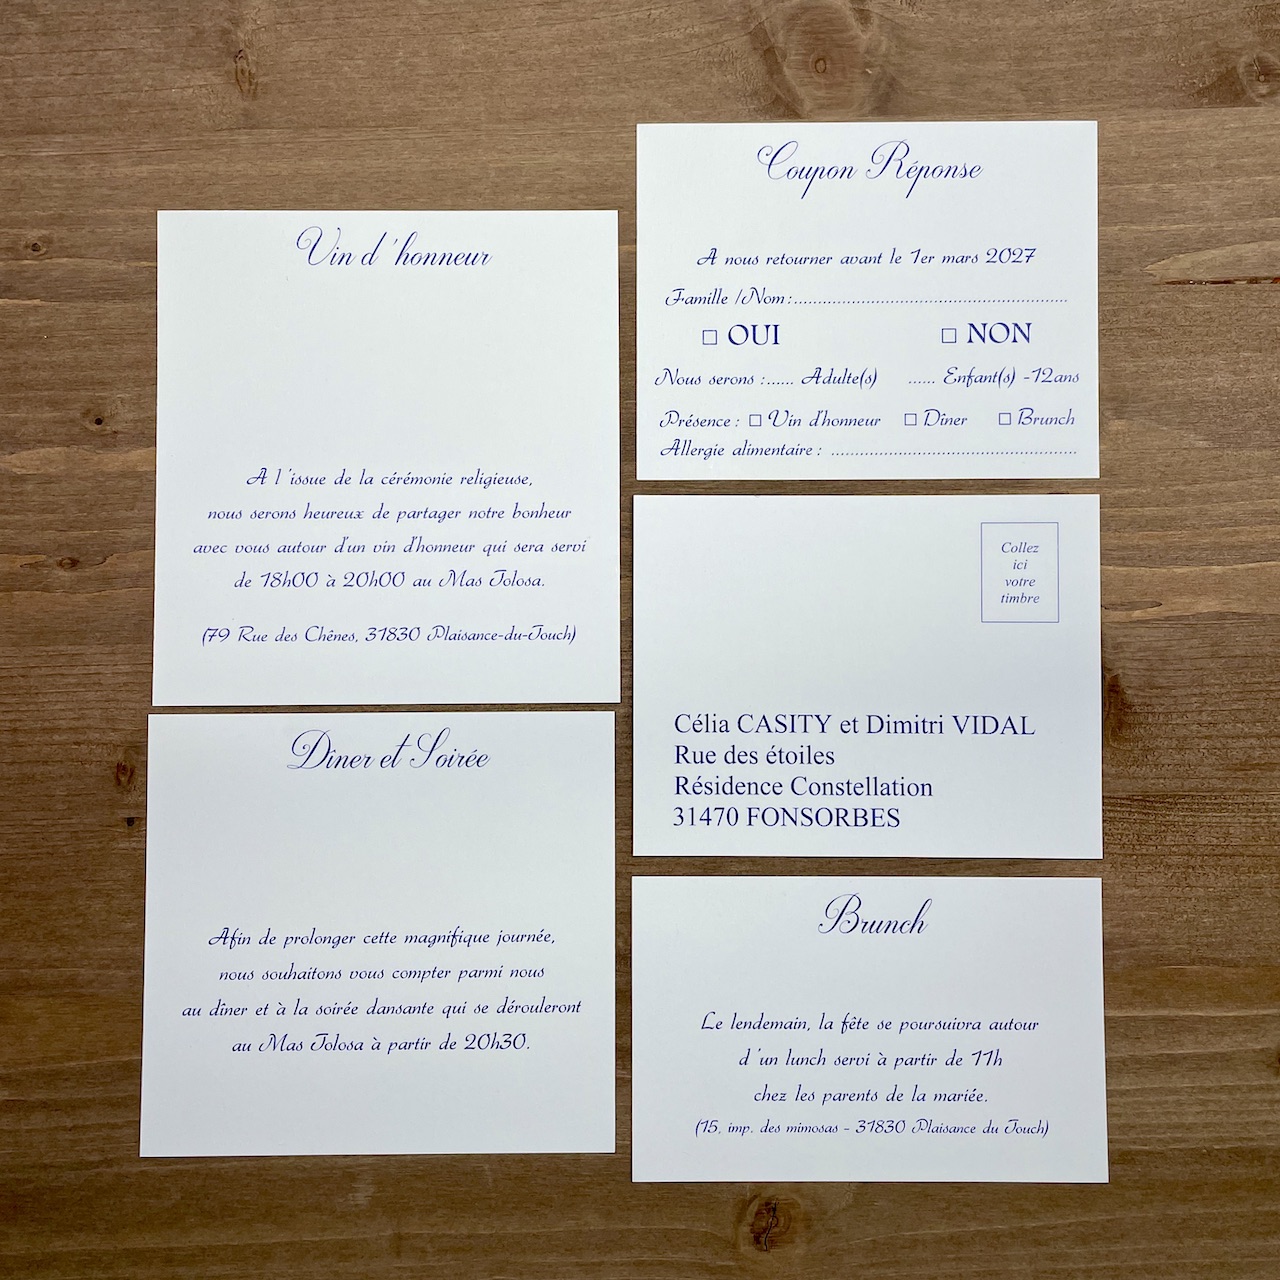 Vin d'honneur
A l'issue de la cérémonie religieuse,
nous serons heureux de partager notre bonheur
avec vous autour d'un vin d'honneur qui sera servi
de 18h00 à 20h00 au Mas Tolosa.
(79 Rue des Chênes, 31830 Plaisance-du-Touch)
Dîner et Soirée
Afin de prolonger cette magnifique journée,
nous souhaitons vous compter parmi nous
au dîner et à la soirée dansante qui se dérouleront
au Mas Tolosa à partir de 20h30.
Coupon Réponse
A nous retourner avant le 1er mars 2027
Famille /Nom:............................................................
□ OUI □ NON
Nous serons :...... Adulte(s) ...... Enfant(s) -12ans
Présence : □ Vin d'honneur □ Dîner □ Brunch
Allergie alimentaire : ......................................................
Collez
ici
votre
timbre
Célia CASITY et Dimitri VIDAL
Rue des étoiles
Résidence Constellation
31470 FONSORBES
Brunch
Le lendemain, la fête se poursuivra autour
d'un lunch servi à partir de 11h
chez les parents de la mariée.
(15, imp. des mimosas - 31830 Plaisance du Touch)